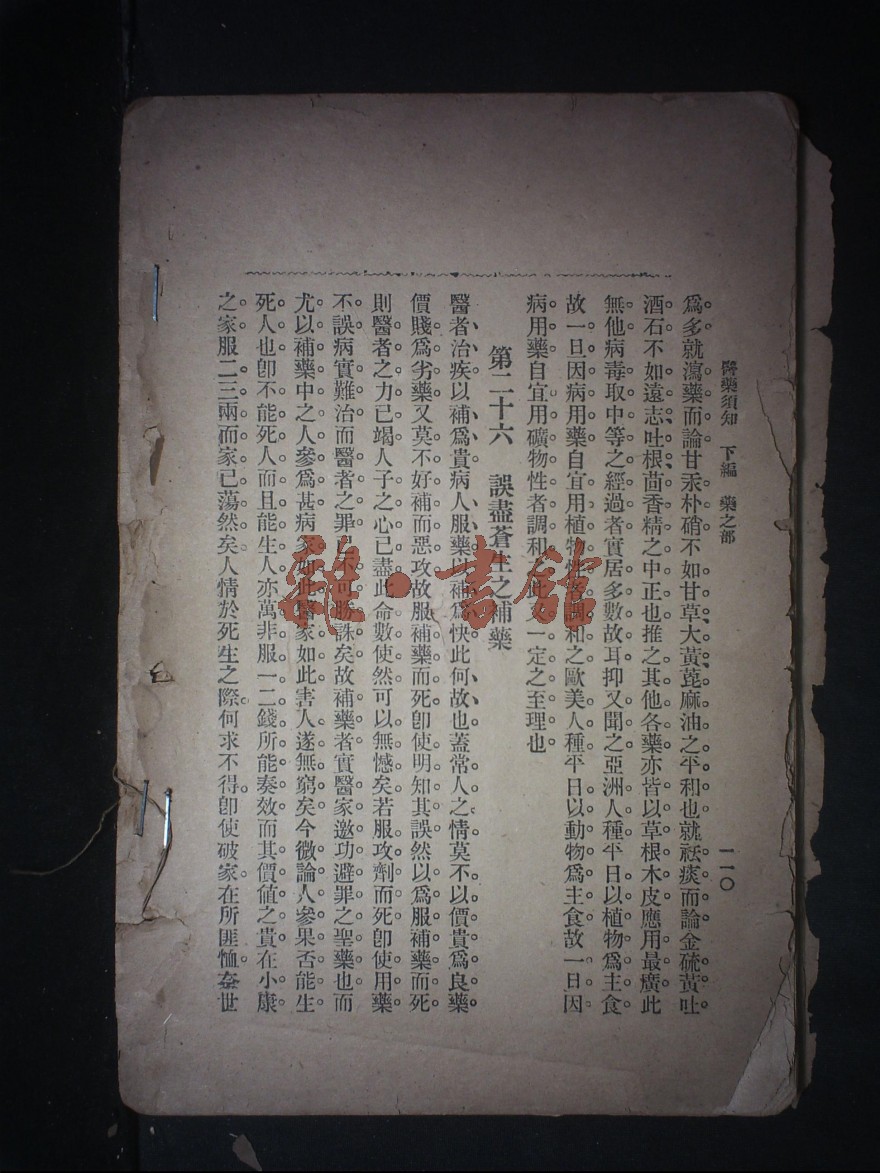 醫藥須知　下編　藥之部
一一〇
爲多就瀉藥而論甘汞朴硝不如甘草大黃蓖麻油之平和也就祛痰而論金硫黃吐
酒石不如遠志吐根茴香精之中正也推之其他各藥亦皆以草根木皮應用最廣此
無他病毒取中等之經過者實居多數故耳抑又聞之亞洲人種平日以植物爲主食
故一旦因病用藥自宜用植物性者調和之歐美人種平日以動物爲主食故一日因
病用藥自宜用礦物性者調和之此又一定之至理也
第二十六　誤盡蒼生之補藥
醫者治疾以補爲貴病人服藥以補爲快此何故也蓋常人之情莫不以價貴爲良藥
價賤爲劣藥又莫不好補而惡攻故服補藥而死卽使明知其誤然以爲服補藥而死
則醫者之力已竭人子之心已盡此命數使然可以無憾矣若服攻劑而死卽使用藥
不誤病實難治而醫者之罪已不可勝誅矣故補藥者實醫家邀功避罪之聖藥也而
尤以補藥中之人參爲甚病家如此醫家如此害人遂無窮矣今微論人參果否能生
死人也卽不能死人而且能生人亦萬非服一二錢所能奏效而其價値之貴在小康
之家服二三兩而家已蕩然矣人情於死生之際何求不得卽使破家在所匪恤奈世
雜·書館